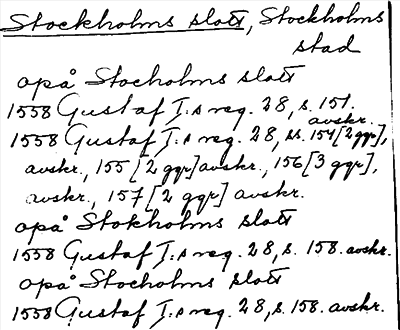 Stockholms slott, Stockholms
stad
opå Stocholms slott
1558 Gustaf I:s reg. 28, s. 151.
avskr.
1558 Gustaf I:s reg. 28, ss. 154 [2 ggr],
avskr., 155 [2 ggr] avskr., 156 [3 ggr],
avskr., 157 [2 ggr] avskr.
opå Stokholms slott
1558 Gustaf I:s reg. 28, s. 158. avskr.
opå Stocholms slott
1558 Gustaf I:s reg. 28, s. 158. avskr.